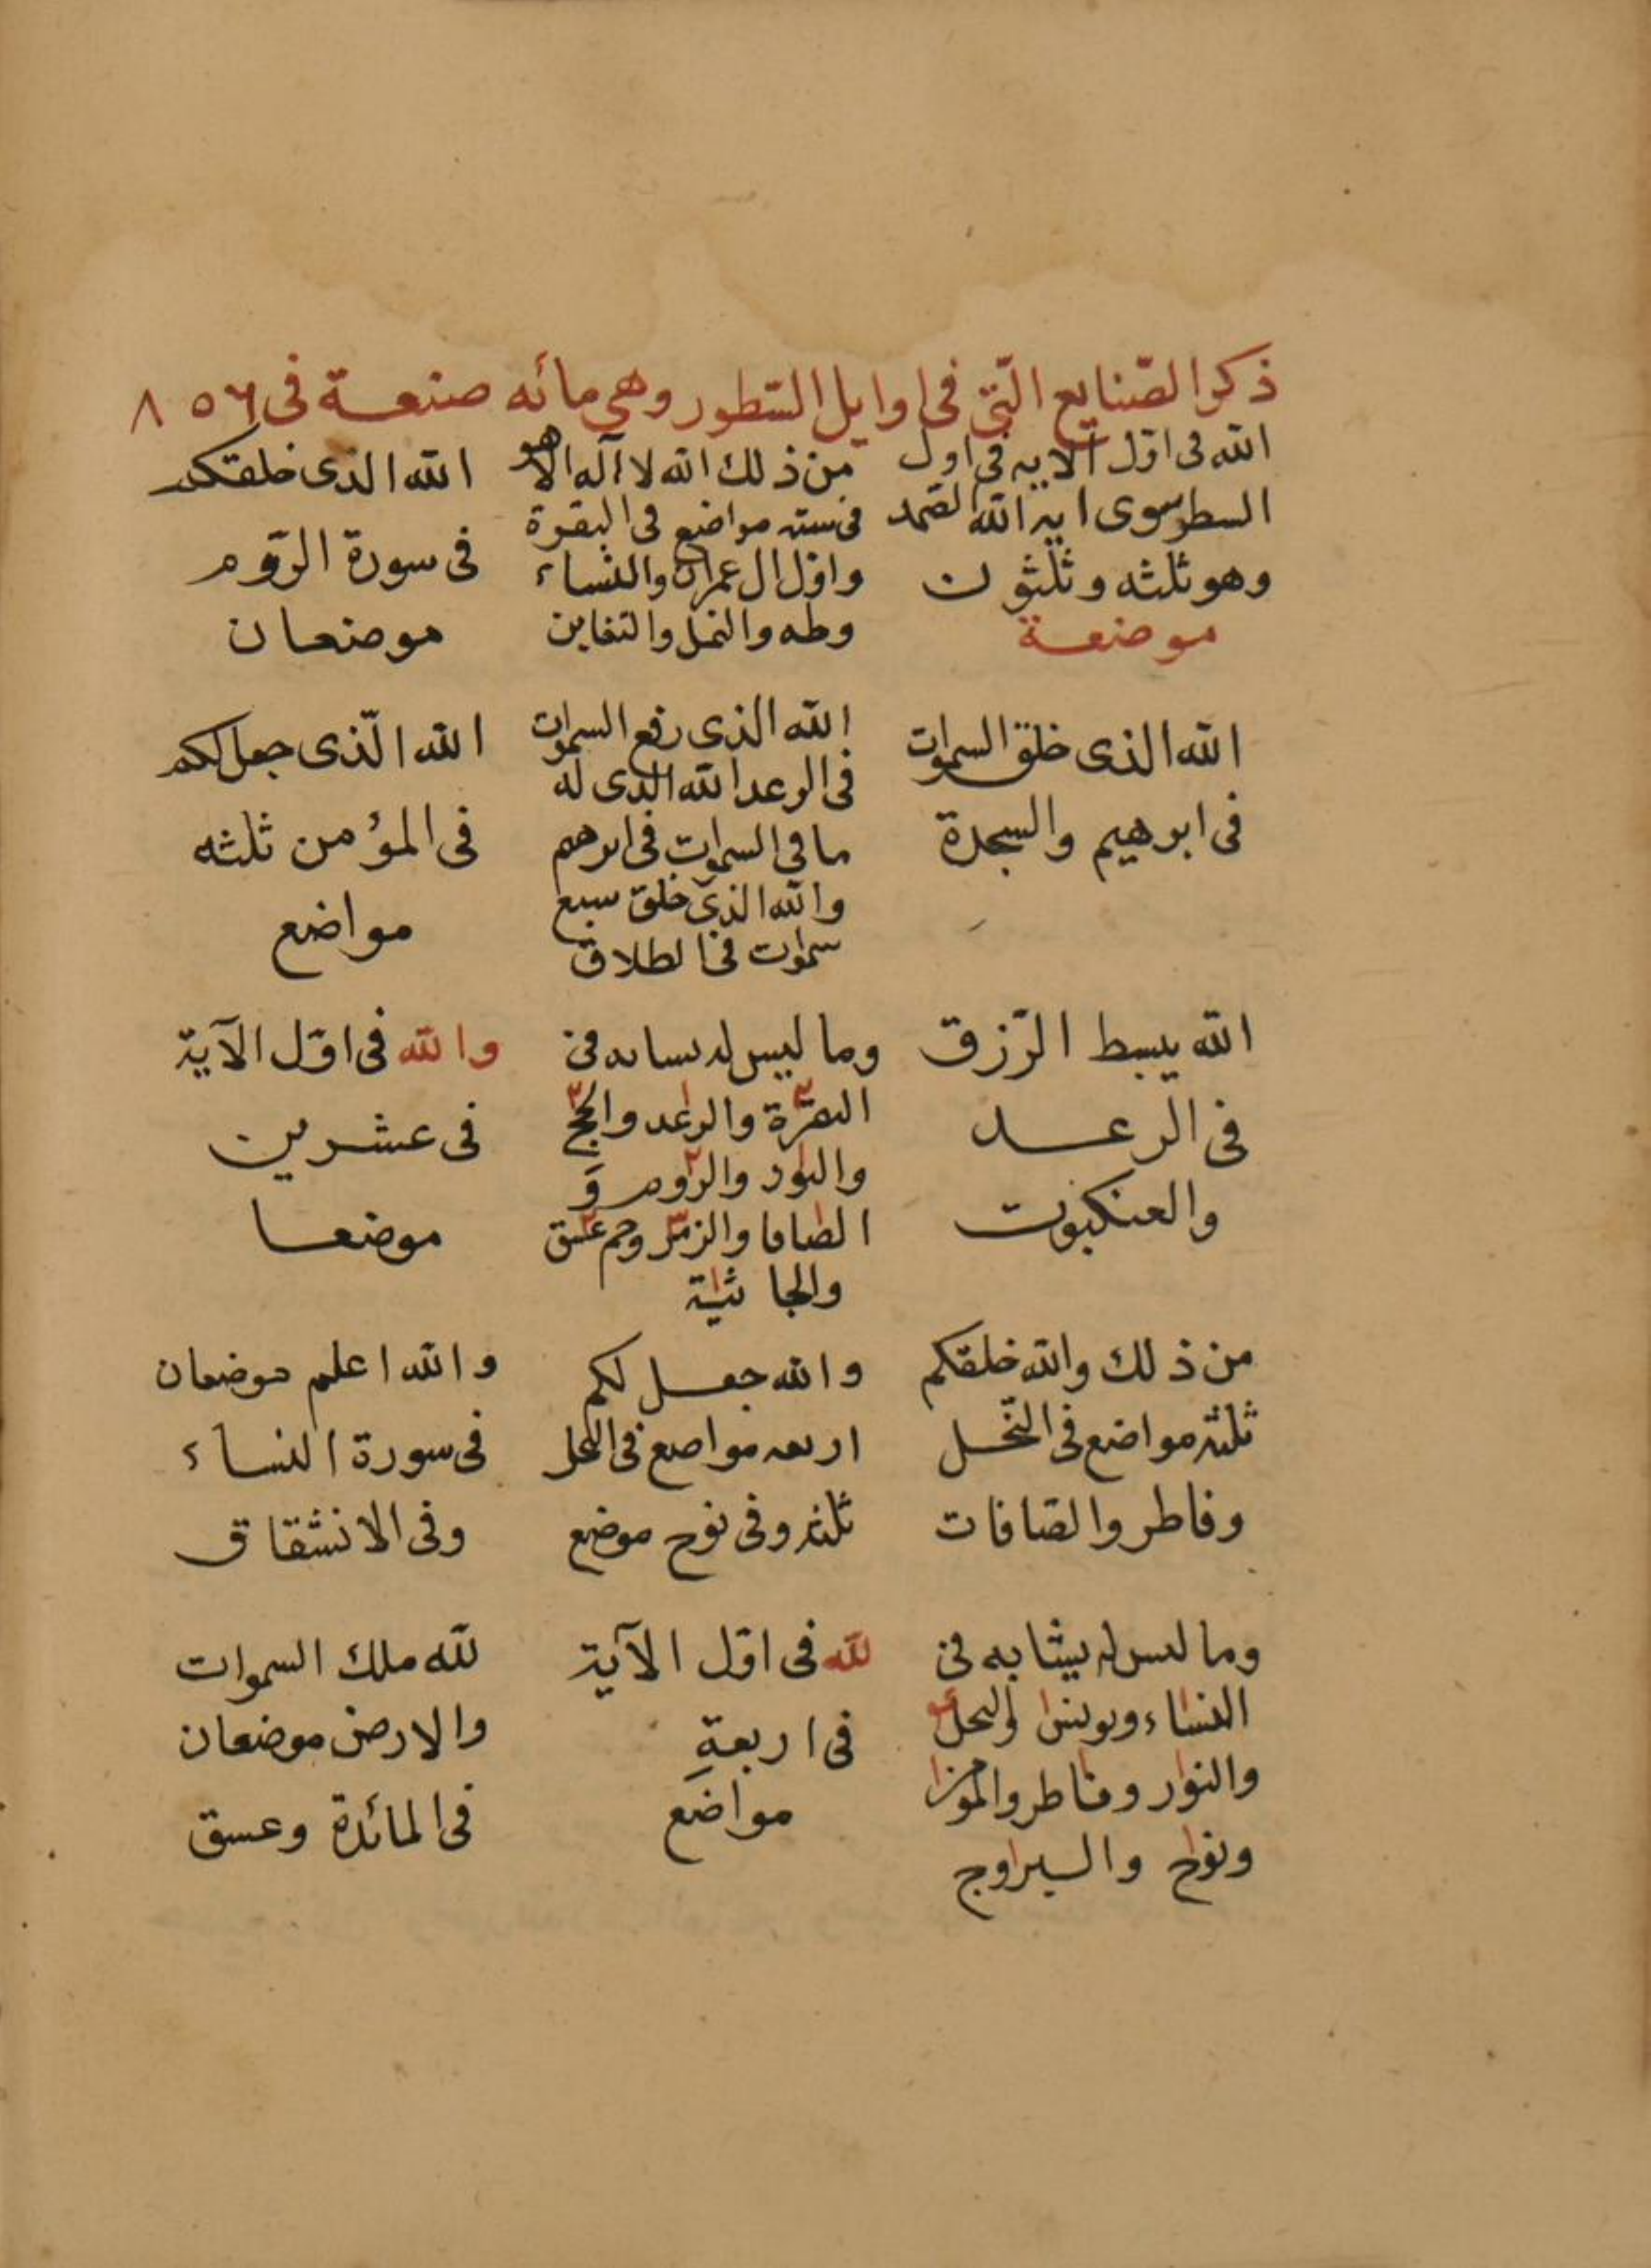 ذكر الصّنايع الّتى فى اوايل السّطور وهى مائه صنعة فى ٨٥٦
الله فى اوّل الآيه فى اول
السطر سوى ايه الله الصّمد
وهو ثلثه وثلثون
موضعة
من ذلك الله لا آله الا هو
فى سته مواضع فى البقرة
واوّل ال عمران والنساء
وطه والنمل والتغابن
الله الذى خلقكم
فى سورة الرّوم
موضعان
الله الذى خلق السموات
فى ابرهيم والسجدة
الله الذى رفع السموات
فى الرعد الله الذى له
ما فى السموات فى ابرهيم
والله الذى خلق سبع
سموات فى الطلاق
الله الّذى جعل لكم
فى المؤمن ثلثه
مواضع
الله يبسط الرّزق
فى الرعد
والعنكبوت
وما ليس له بسابه فى
البقرة والرعد والحج
والنور والروم و
الصافا والزمر وحم عسق
والجاثية
والله فى اوّل الآية
فى عشرين
موضعا
من ذلك والله خلقكم
ثلثه مواضع فى النّحل
وفاطر والصّافات
والله جعل لكم
اربعه مواضع فى النحل
ثلثه وفى نوح موضع
والله اعلم موضعان
فى سورة النساء
وفى الانشقاق
وما ليس له يشابه فى
النساء ويونس والنحل
والنور وفاطر والمؤمن
ونوح والبروج
لله فى اوّل الآية
فى اربعةِ
مواضع
لله ملك السموات
والارض موضعان
فى المائدة وعسق